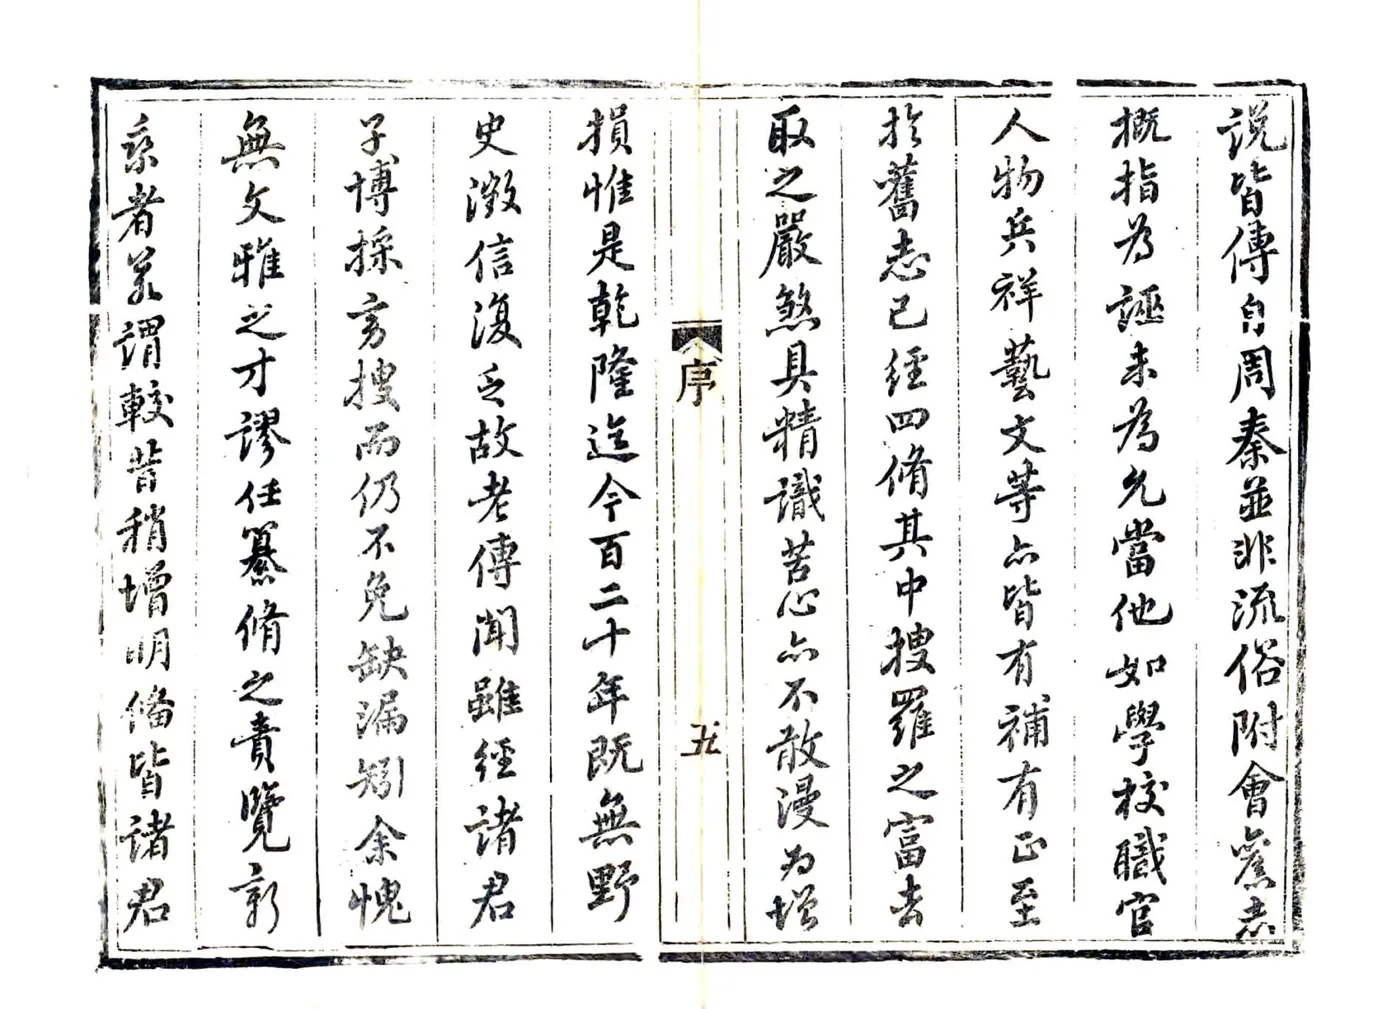 說皆傳自周秦並非流俗附會舊志
概指為誣未為允當他如學校職官
人物兵祥藝文等亦皆有補有正至
於舊志已經四脩其中搜羅之富去
取之嚴煞具精識苦心亦不敢漫為增
序
五
損惟是乾隆迄今百二十年既無野
史徵信復乏故老傳聞雖經諸君
子博採旁搜而仍不免缺漏矧余愧
無文雅之才謬任纂脩之責覽新
乘者若謂較昔稍增明備皆諸君